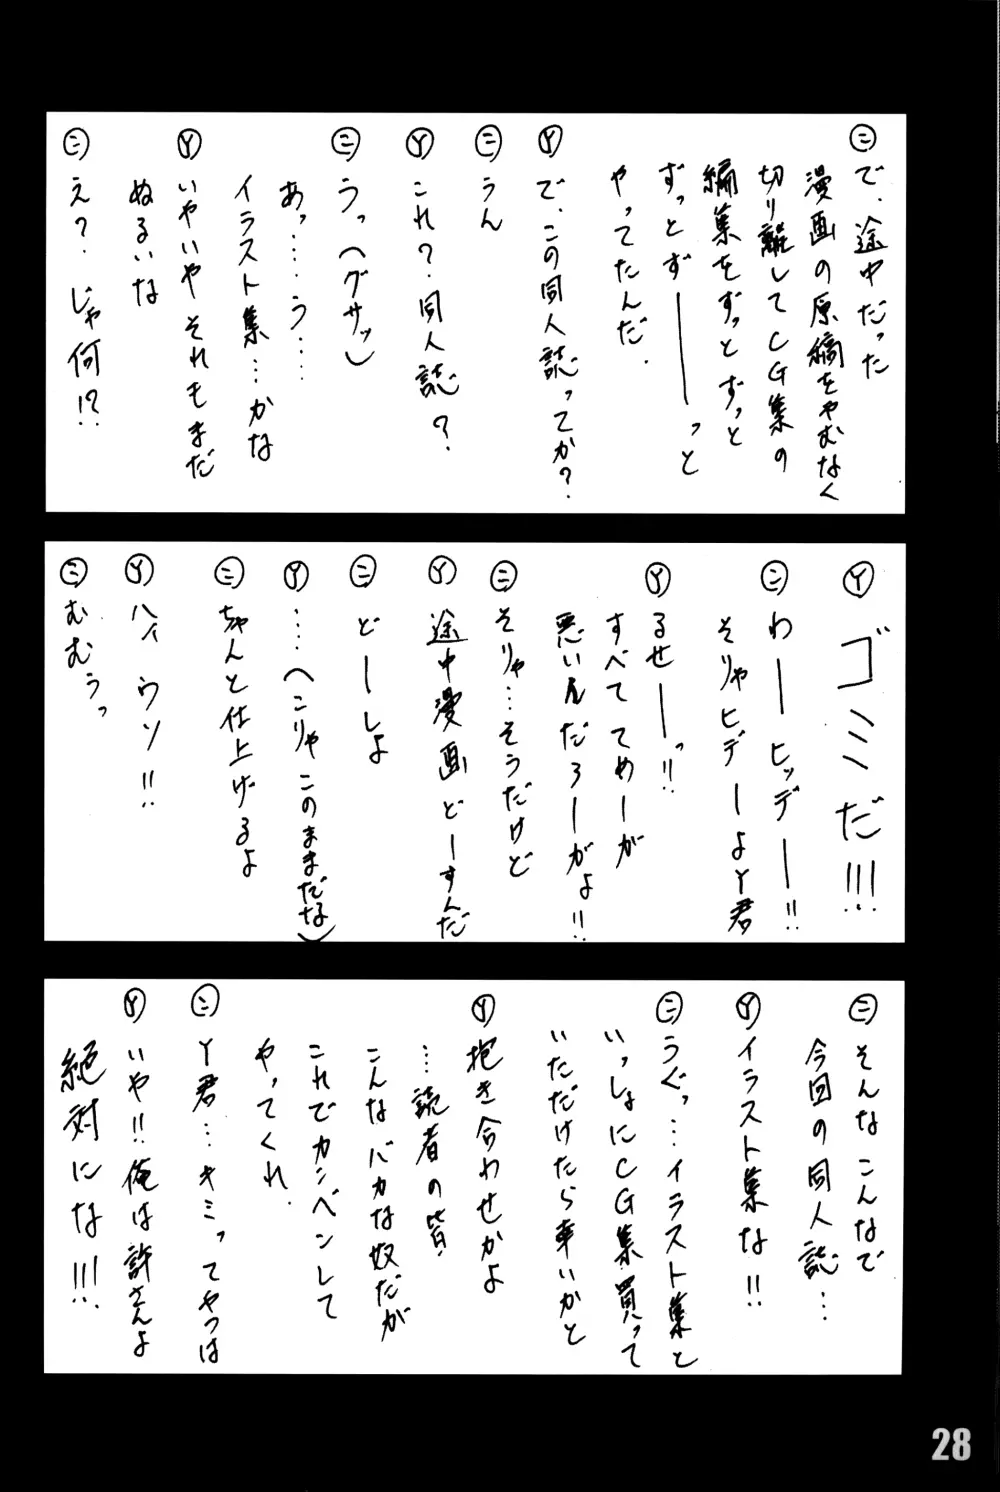 ㊁で、途中だった
漫画の原稿をやむなく
切り離してCG集の
編集をずっとずっと
ずっとずーーーっと
やってたんだ.
Ⓨで、この同人誌ってか?
㊁うん
Ⓨこれ?同人誌?
㊁うっ(グサッ)
あっ……う……
イラスト集…かな
Ⓨいやいやそれもまだ
ぬるいな
㊁え?じゃ何!?
Ⓨゴミだ!!!
㊁わーーヒッデー!!
そりゃヒデーよY君
Ⓨるせーーっ!!
すべててめーが
悪いんだろーがよ!!
㊁そりゃ…そうだけど
Ⓨ途中漫画どーすんだ
㊁どーしよ
Ⓨ……(こりゃこのままだな)
㊁ちゃんと仕上げるよ
Ⓨハイウソ!!
㊁むむぅっ
㊁そんなこんなで
今回の同人誌…
Ⓨイラスト集な!!
㊁うぐっ…イラスト集と
いっしょにCG集買って
いただけたら幸いかと
Ⓨ抱き合わせかよ
…読者の皆.
こんなバカな奴だが
これでカンベンして
やってくれ.
㊁Y君…キミってやつは
Ⓨいや!!俺は許さんよ
絶対にな!!!
28